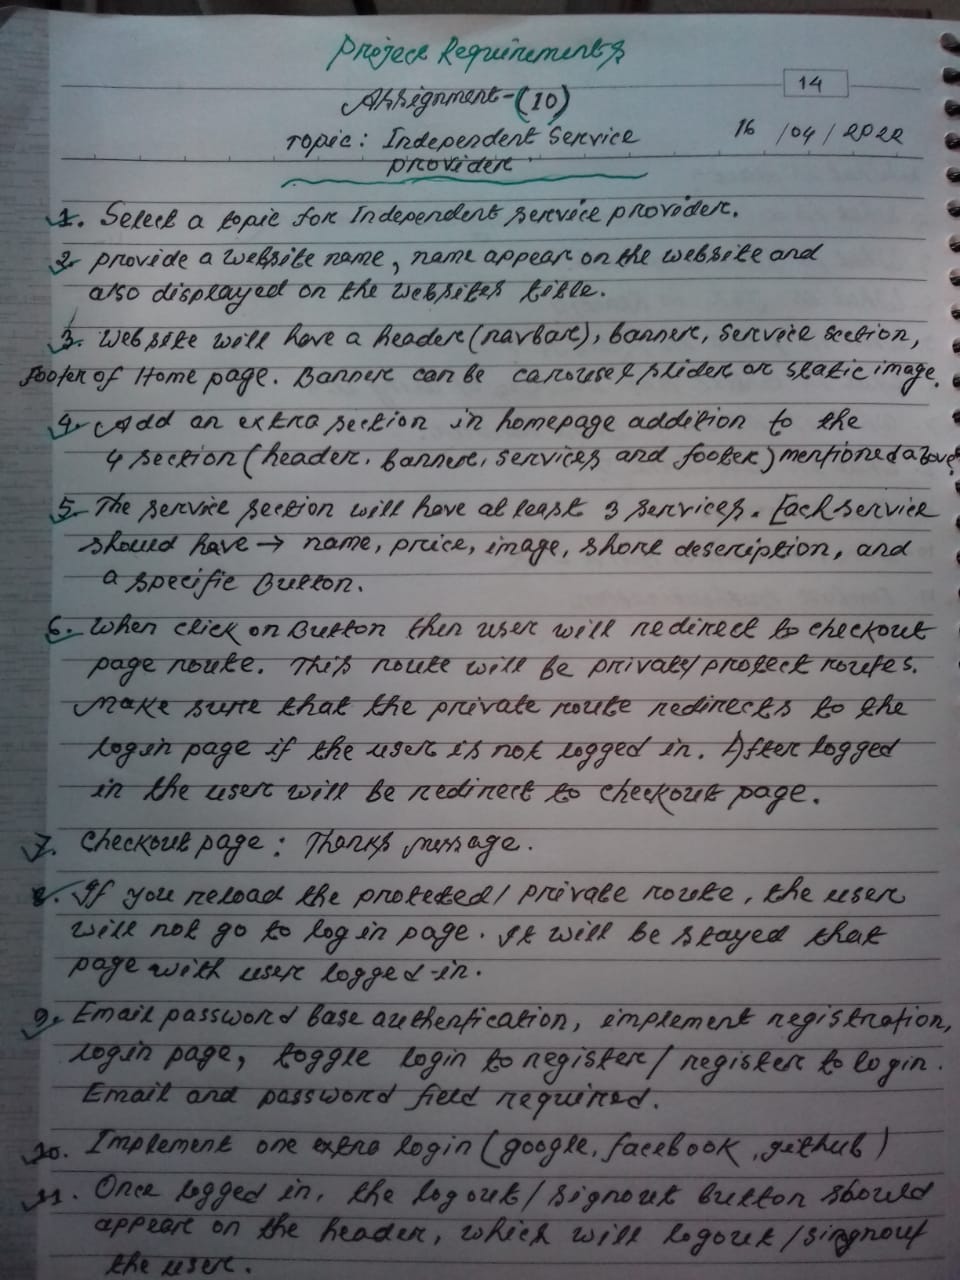 Project Requirements
14
Assignment-(10)
Topic: Independent Service
16 /04/2022
provider
1. Select a topic for Independent service provider.
2. provide a website name, name appear on the website and
also displayed on the websites title.
3. Website will have a header (navbar), banner, service section,
footer of Home page. Banner can be carousel slider or static image.
4. Add an extra section in homepage addition to the
4 section (header, banner, services and footer) mentioned above.
5. The service section will have at least 3 services. Each service
should have → name, price, image, short description, and
a specific Button.
6. When click on Button then user will redirect to checkout
page route. This route will be private/protect routes.
Make sure that the private route redirects to the
login page if the user is not logged in. After logged
in the user will be redirect to checkout page.
7. Checkout page: Thanks message.
8. If you reload the proteted/private route, the user
will not go to log in page. It will be stayed that
page with user logged-in.
9. Email password base authentication, implement registration,
login page, toggle login to register/register to login.
Email and password field required.
10. Implement one extra login (google, facebook, github)
11. Once logged in, the logout/signout button should
appear on the header, which will logout/singnout
the user.